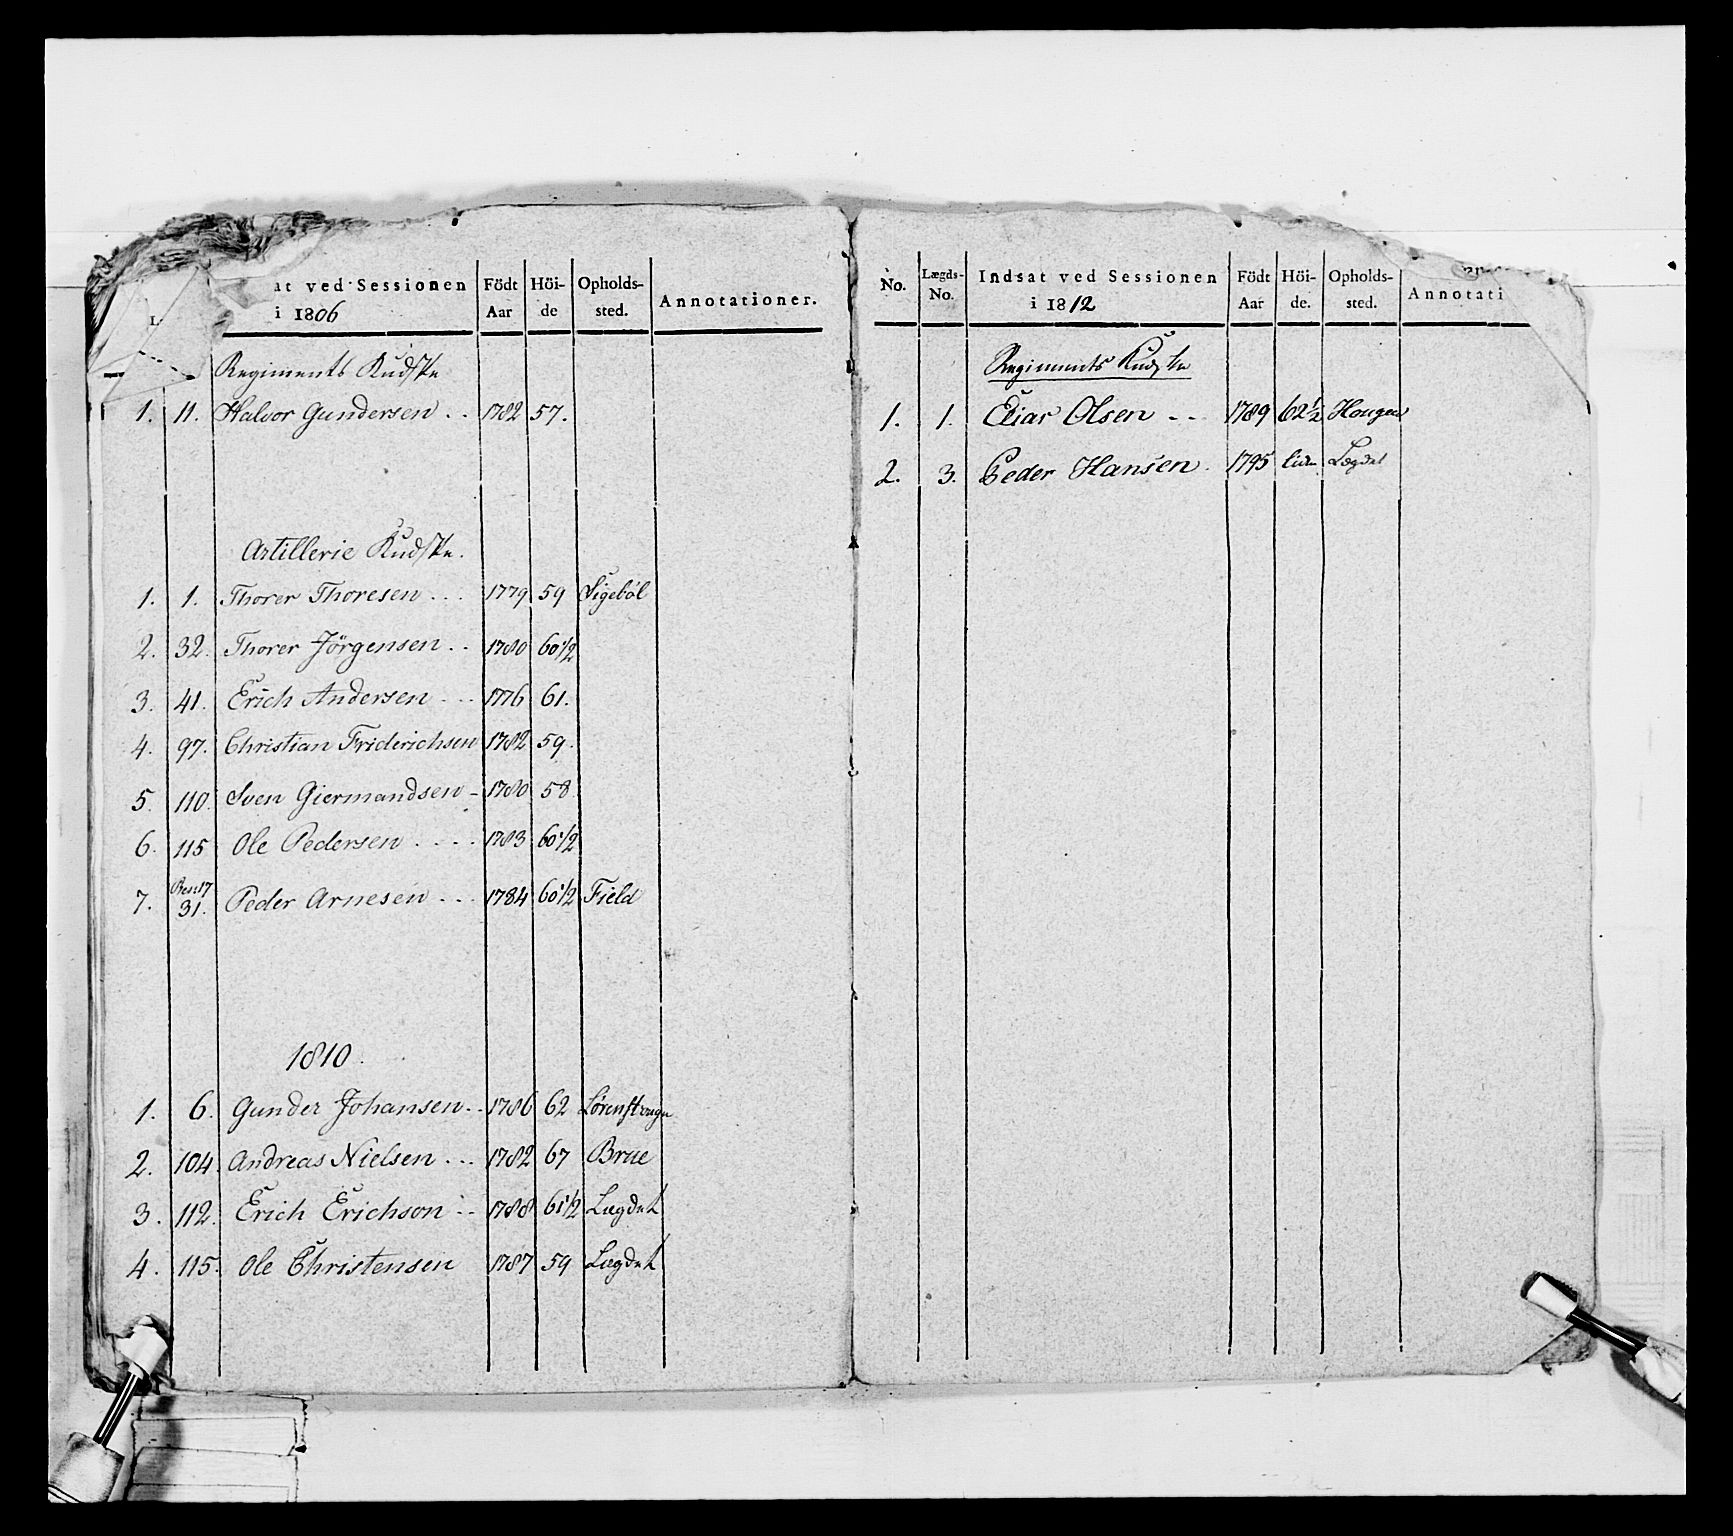 at ved Sessionen Födt Höi- Opholds-
i 1806 Aar de sted. Annotationer.
Regiments Kudske
1. 11. Halvor Gundersen . . 1782 57.
Artillerie Kudske.
1. 1. Thorer Thoresen . . . 1779 59 Sigeböl
2. 32. Thorer Jörgensen . . 1780 60 1/2
3. 41. Erich Andersen . . . 1776 61.
4. 97. Christian Friderichsen 1782 59.
5. 110. Sven Giermandsen - 1780 58
6. 115 Ole Pedersen . . . . 1783 60 1/2
7. 31. Peder Arnesen . . . 1784 60 1/2 Field
1810.
1. 6. Gunder Johansen . . 1786 62
2. 104 Andreas Nielsen . . . 1782 67 Brue
3. 112. Erich Erichson . . 1788 61 1/2 Lægdet
4. 115. Ole Christensen 1787 59 Lægdet
No. Lægds- Indsat ved Sessionen Födt Höi- Opholds-
No. i 1812 Aar de. sted. Annotati
Regiments Kudske
1. 1. Eliar Olsen - - 1789 62 1/2 Hougen
2. 3. Peder Hansen. 1795 Lægdet